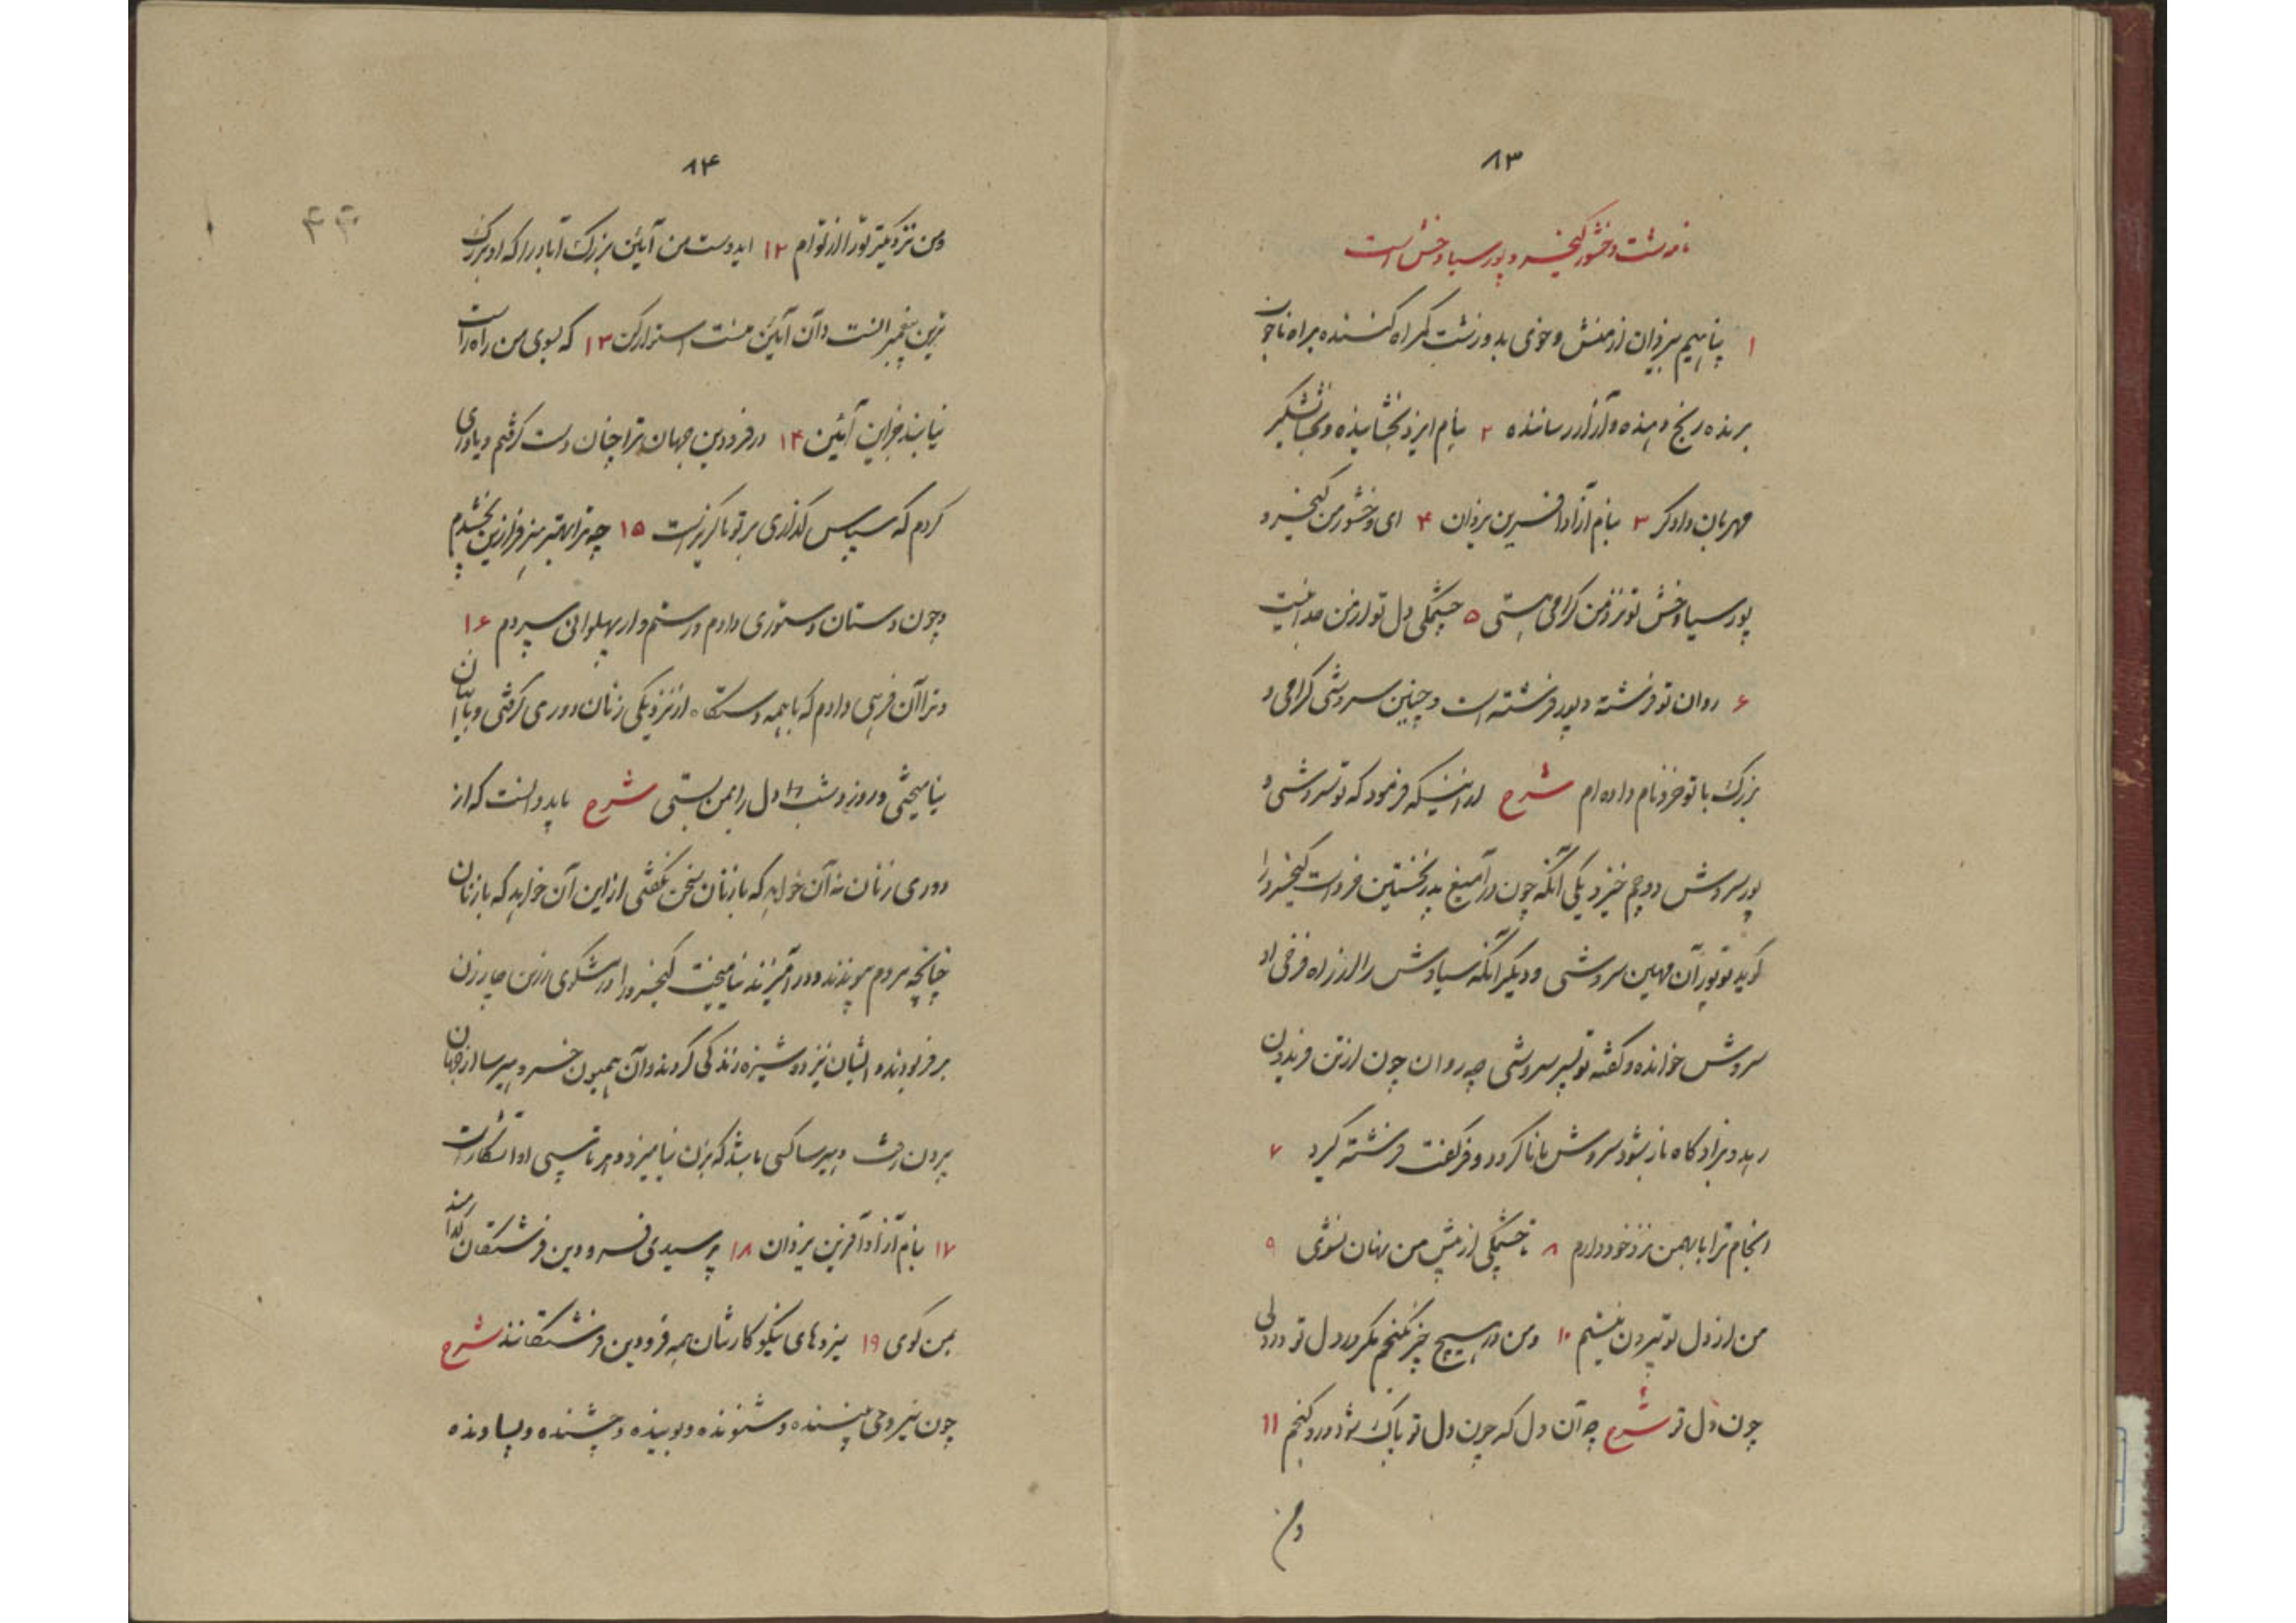 ۸۳
نامه شت وخشور کیخسرو پور سیاوخش است
۱ پناهیم بیزدان از منش و خوی بد و زشت گمراه کننده براه ناخوب
برنده رنج دهنده و آزار رساننده ۲ بنام ایزد بخشاینده بخشایشگر
مهربان دادگر ۳ بنام آزاد آفرین یزدان ۴ ای وخشور من کیخسرو
پور سیاوخش تو نزد من گرامی هستی ۵ چشمگی دل تو از من جدا نیست
۶ روان تو فرشته و پور فرشته است و چنین سروشی گرامی و
بزرگ با تو خرد نام داده ام شرح اینکه فرمود که تو سروشی و
پور سروش دو چم خیزد یکی آنکه چون در آمیغ پدر نخستین خرد است کیخسرو را
گوید تو پور آن مهین سروشی و دیگر آنکه سیاوش را از راه فرخی او
سروش خوانده و گفته تو پسر سروشی چه روان چون از تن فریدون
رهد و بزادگاه باز شود سروش مانا گردد و فرگفت فرشته گیرد ۷
انجام ترا با بهمن نزد خود دارم ۸ تا چشمگی از پیش من نهان نشوی ۹
من از دل تو بیرون نیستم ۱۰ و من در هیچ چیز نگنجم مگر در دل تو و در دلی
چون دل تو شرح چه آن دل که چون دل تو پاک شود در و گنجم ۱۱
و من
۸۴
و من نزدیکتر تو را از توام ۱۲ ایدوست من آیین بزرگ آباد را که او بزرگ
ترین پیغمبرانست و آن آیین منست استوار کن ۱۳ که بسوی من راه راست
نیابند جز این آئین ۱۴ در فرودین جهان ترا چنان دست گرفتم و یاوری
کردم که سپاس گذاری بر تو ناگزیر است ۱۵ چه ترا بهتر بنر فرازین بخشیدم
و چون دستان دستوری دادم و رستم وار پهلوانی سپردم ۱۶
و ترا آن فرهی دادم که با همه دستگاه از نزدیکی زنان دوری گرفتی و با ایشان
نیامیختی و روز و شب دل را بمن بستی شرح باید دانست که از
دوری زنان نه آن خواهد که با زنان سخن نگفتی از این آن خواهد که با زنان
چنانچه مردم پیوندند و در آمیزند نیامیخت کیخسرو را در شکوی ازین چار زن
بر فر بودند و ایشان نیز دوشیزه زندگی کردند و آن همیون خسرو هیرسا از جهان
بیرون رفت و هیرسا کسی باشد که بزن نیامیزد و هر تاسپی او آشکار است
۱۷ بنام آزاد آفرین یزدان ۱۸ پرسیدی فرودین فرشتگان کدامند
بمن گوی ۱۹ نیروهای نیکو کارشان همه فرودین فرشتگانند شرح
چون نیروی بیننده و شنونده و بوینده و چشنده و پساونده